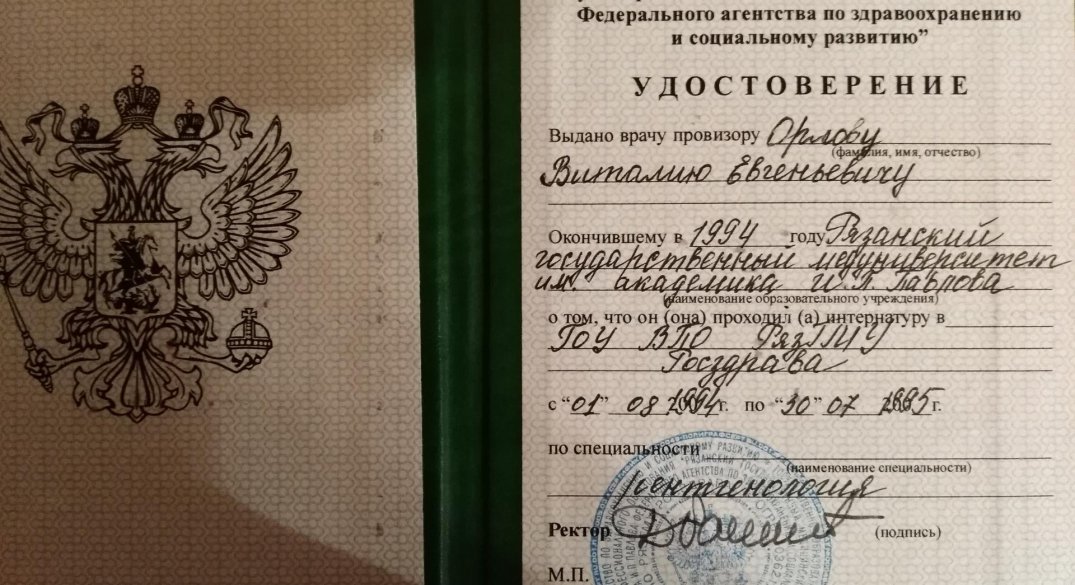 Федерального агентства по здравоохранению
и социальному развитию”
УДОСТОВЕРЕНИЕ
Выдано врачу провизору Орлову
(фамилия, имя, отчество)
Виталию Евгеньевичу
Окончившему в 1994 году Рязанский
государственный медуниверситет
им. академика И.П. Павлова
(наименование образовательного учреждения)
о том, что он (она) проходил (а) интернатуру в
ГОУ ВПО РязГМУ
Росздрава
с “01” 08 1994г. по “30” 07 1995г.
по специальности
(наименование специальности)
рентгенология
Ректор (подпись)
М.П.